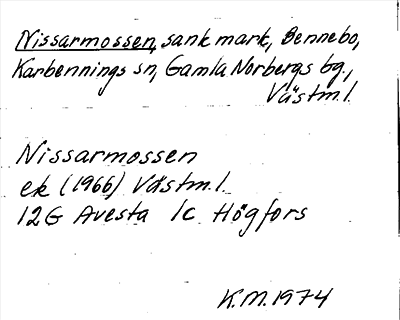 Nissarmossen, sank mark, Bennebo,
Karbennings sn, Gamla Norbergs bg.,
Västm.l.
Nissarmossen
ek (1966) Västm.l.
12G Avesta 1c Högfors
K.M. 1974